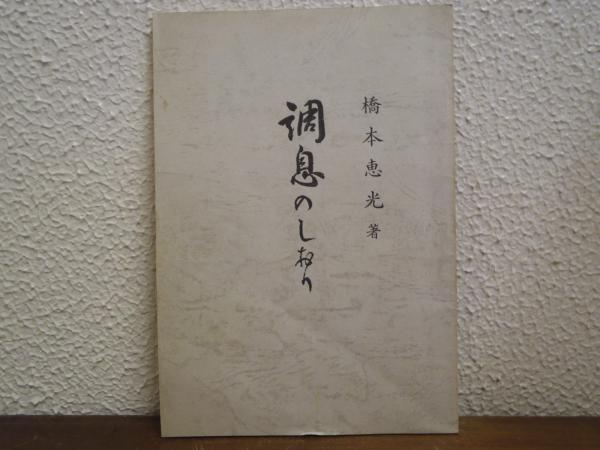 橋本恵光著
調息のしおり